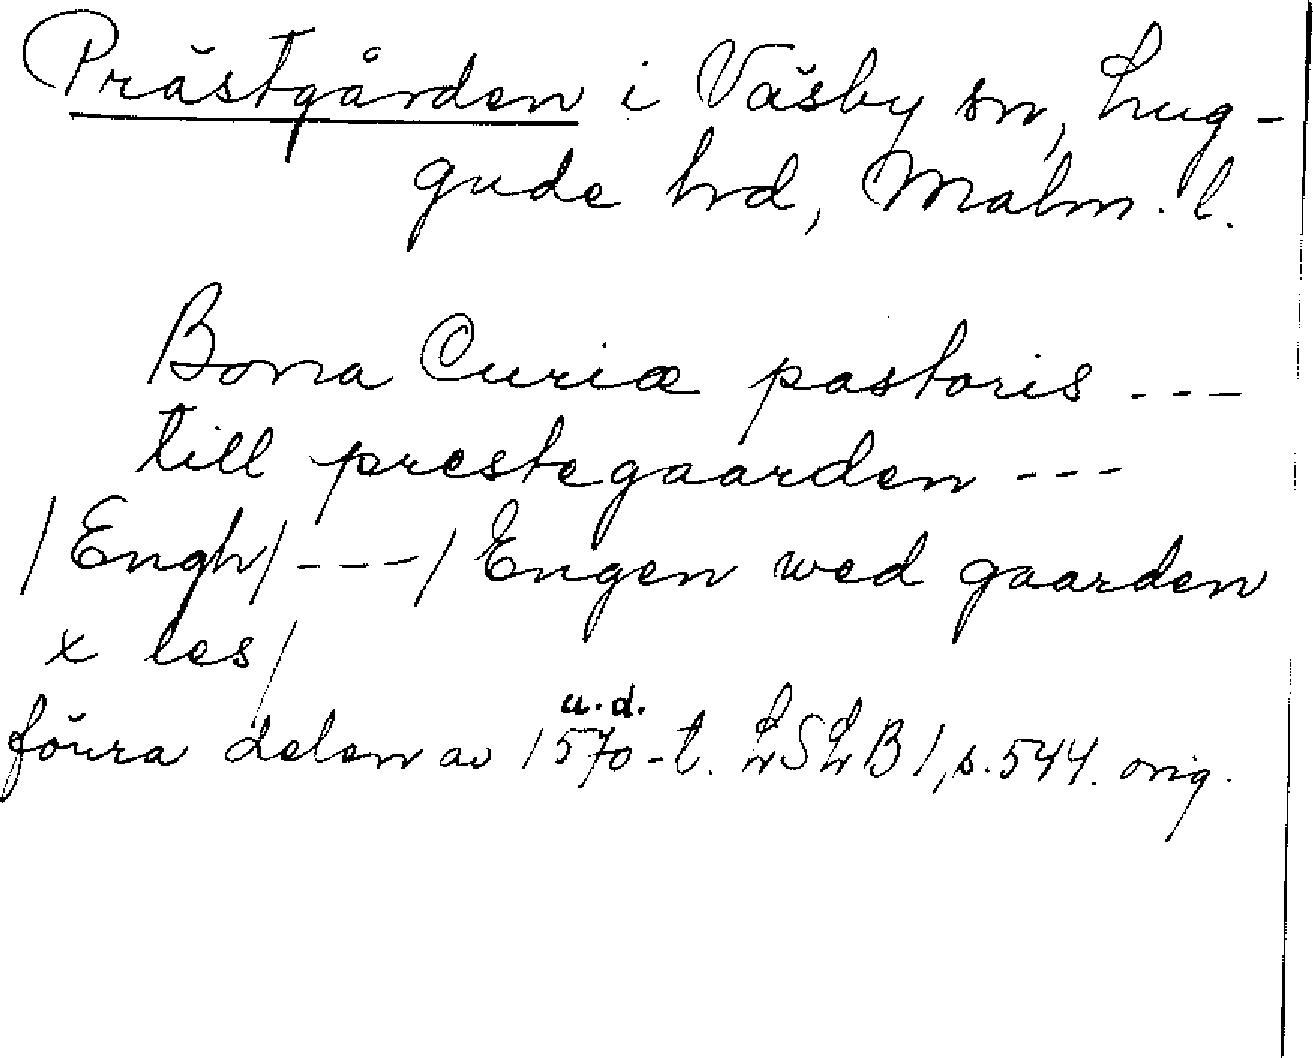 Prästgården i Väsby sn, Lug-
gude hd, Malm. l.
Bona Curiæ pastoris ---
till prestegaarden ---
/Engh/ --- / Engen wed gaarden
x les/
u.d.
förra delen av 1570-t. LSLB 1, s. 544. orig.